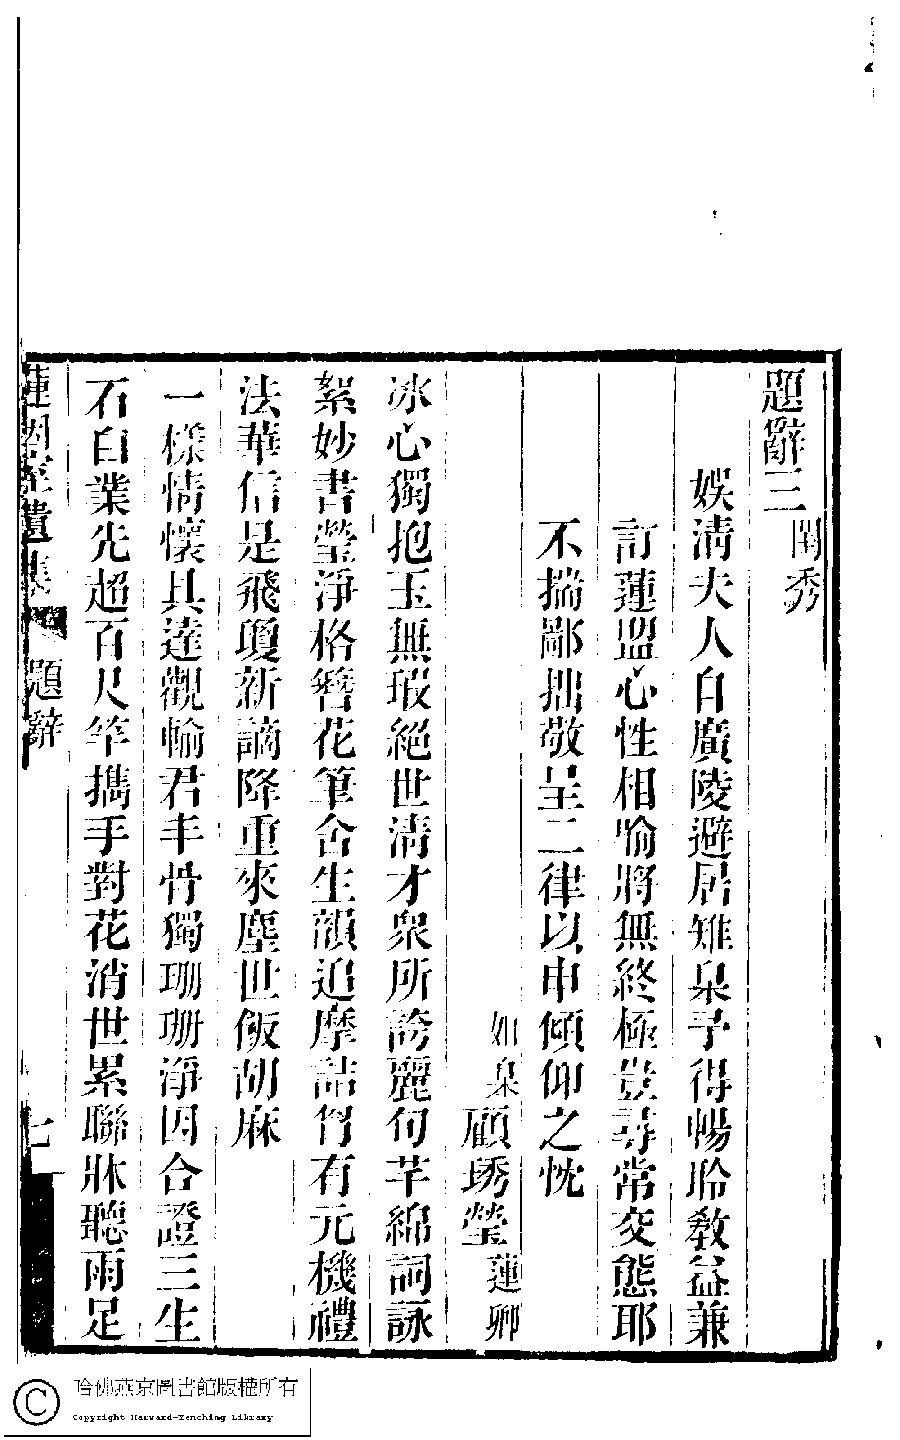 題辭三 閨秀
娛清夫人自廣陵避居雉臯予得暢聆敎益兼
訂蓮盟心性相喻將無終極豈尋常交態耶
不揣鄙拙敬呈二律以申傾仰之忱
如臯 顧琇瑩 蓮卿
冰心獨抱玉無瑕絕世淸才衆所誇麗句芊綿詞詠
絮妙書瑩淨格簪花筆含生韻追摩詰胷有元機禮
法華信是飛瓊新謫降重來塵世飯胡麻
一樣情懷具達觀輸君丰骨獨珊珊淨因合證三生
石白業先超百尺竿攜手對花消世累聯牀聽雨足
蓮因室遺集 題辭 七
哈佛燕京圖書館版權所有
Copyright Harvard-Yenching Library